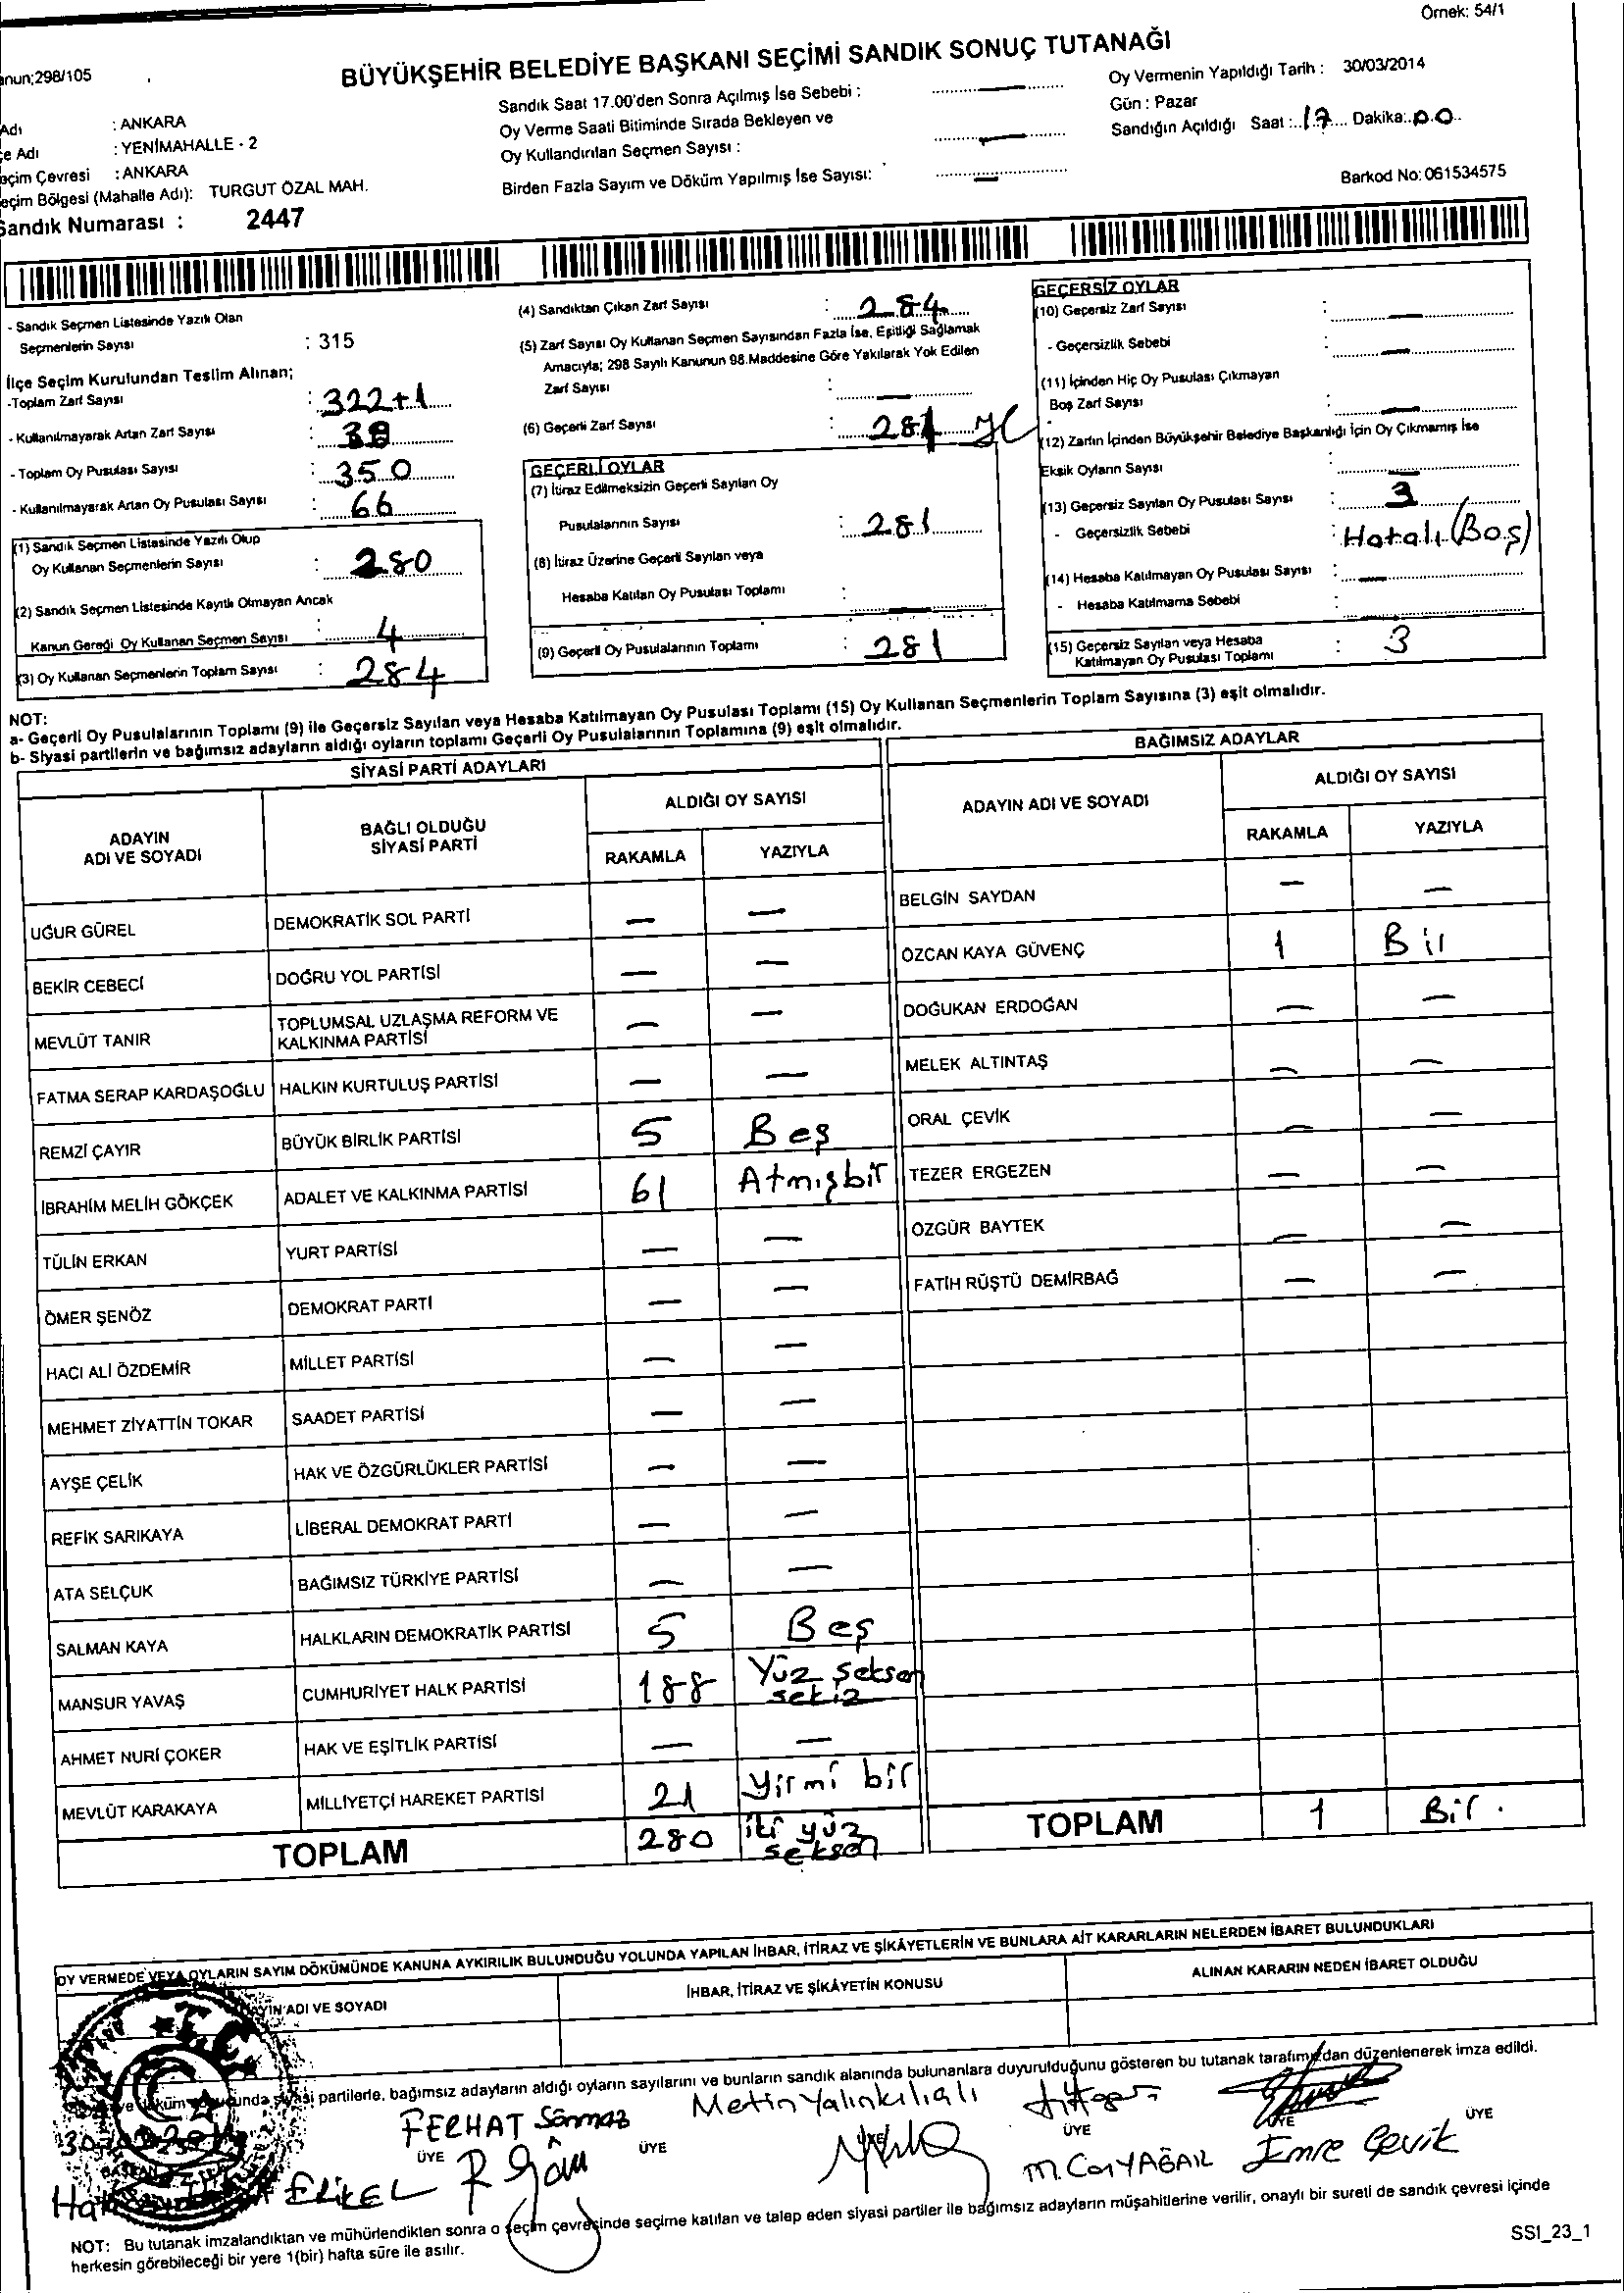 Örnek: 54/1
BÜYÜKŞEHİR BELEDİYE BAŞKANI SEÇİMİ SANDIK SONUÇ TUTANAĞI
anun;298/105
Adı : ANKARA
çe Adı : YENİMAHALLE - 2
eçim Çevresi : ANKARA
eçim Bölgesi (Mahalle Adı): TURGUT ÖZAL MAH.
Sandık Numarası : 2447
Sandık Saat 17.00'den Sonra Açılmış İse Sebebi : —
Oy Verme Saati Bitiminde Sırada Bekleyen ve
Oy Kullandırılan Seçmen Sayısı : —
Birden Fazla Sayım ve Döküm Yapılmış İse Sayısı: —
Oy Vermenin Yapıldığı Tarih : 30/03/2014
Gün : Pazar
Sandığın Açıldığı Saat : 17 Dakika: 00
Barkod No: 061534575
- Sandık Seçmen Listesinde Yazılı Olan
Seçmenlerin Sayısı : 315
İlçe Seçim Kurulundan Teslim Alınan;
-Toplam Zarf Sayısı : 322+1
- Kullanılmayarak Artan Zarf Sayısı : 38
- Toplam Oy Pusulası Sayısı : 350
- Kullanılmayarak Artan Oy Pusulası Sayısı : 66
(1) Sandık Seçmen Listesinde Yazılı Olup
Oy Kullanan Seçmenlerin Sayısı : 280
(2) Sandık Seçmen Listesinde Kayıtlı Olmayan Ancak
Kanun Gereği Oy Kullanan Seçmen Sayısı : 4
(3) Oy Kullanan Seçmenlerin Toplam Sayısı : 284
(4) Sandıktan Çıkan Zarf Sayısı : 284
(5) Zarf Sayısı Oy Kullanan Seçmen Sayısından Fazla İse, Eşitliği Sağlamak
Amacıyla; 298 Sayılı Kanunun 98.Maddesine Göre Yakılarak Yok Edilen
Zarf Sayısı : —
(6) Geçerli Zarf Sayısı : 281
GEÇERLİ OYLAR
(7) İtiraz Edilmeksizin Geçerli Sayılan Oy
Pusulalarının Sayısı : 281
(8) İtiraz Üzerine Geçerli Sayılan veya
Hesaba Katılan Oy Pusulası Toplamı : —
(9) Geçerli Oy Pusulalarının Toplamı : 281
GEÇERSİZ OYLAR
(10) Geçersiz Zarf Sayısı : —
- Geçersizlik Sebebi : —
(11) İçinden Hiç Oy Pusulası Çıkmayan
Boş Zarf Sayısı : —
(12) Zarfın İçinden Büyükşehir Belediye Başkanlığı İçin Oy Çıkmamış İse
Eksik Oyların Sayısı : —
(13) Geçersiz Sayılan Oy Pusulası Sayısı : 3
- Geçersizlik Sebebi : Hatalı (Boş)
(14) Hesaba Katılmayan Oy Pusulası Sayısı : —
- Hesaba Katılmama Sebebi : —
(15) Geçersiz Sayılan veya Hesaba
Katılmayan Oy Pusulası Toplamı : 3
NOT:
a- Geçerli Oy Pusulalarının Toplamı (9) ile Geçersiz Sayılan veya Hesaba Katılmayan Oy Pusulası Toplamı (15) Oy Kullanan Seçmenlerin Toplam Sayısına (3) eşit olmalıdır.
b- Siyasi partilerin ve bağımsız adayların aldığı oyların toplamı Geçerli Oy Pusulalarının Toplamına (9) eşit olmalıdır.
SİYASİ PARTİ ADAYLARI
ADAYIN ADI VE SOYADI
BAĞLI OLDUĞU SİYASİ PARTİ
ALDIĞI OY SAYISI
RAKAMLA YAZIYLA
UĞUR GÜREL DEMOKRATİK SOL PARTİ — —
BEKİR CEBECİ DOĞRU YOL PARTİSİ — —
MEVLÜT TANIR TOPLUMSAL UZLAŞMA REFORM VE KALKINMA PARTİSİ — —
FATMA SERAP KARDAŞOĞLU HALKIN KURTULUŞ PARTİSİ — —
REMZİ ÇAYIR BÜYÜK BİRLİK PARTİSİ 5 Beş
İBRAHİM MELİH GÖKÇEK ADALET VE KALKINMA PARTİSİ 61 Atmışbir
TÜLİN ERKAN YURT PARTİSİ — —
ÖMER ŞENÖZ DEMOKRAT PARTİ — —
HACI ALİ ÖZDEMİR MİLLET PARTİSİ — —
MEHMET ZİYATTİN TOKAR SAADET PARTİSİ — —
AYŞE ÇELİK HAK VE ÖZGÜRLÜKLER PARTİSİ — —
REFİK SARIKAYA LİBERAL DEMOKRAT PARTİ — —
ATA SELÇUK BAĞIMSIZ TÜRKİYE PARTİSİ — —
SALMAN KAYA HALKLARIN DEMOKRATİK PARTİSİ 5 Beş
MANSUR YAVAŞ CUMHURİYET HALK PARTİSİ 188 Yüz Seksen sekiz
AHMET NURİ ÇOKER HAK VE EŞİTLİK PARTİSİ — —
MEVLÜT KARAKAYA MİLLİYETÇİ HAREKET PARTİSİ 21 Yirmi bir
TOPLAM 280 iki yüz seksen
BAĞIMSIZ ADAYLAR
ADAYIN ADI VE SOYADI
ALDIĞI OY SAYISI
RAKAMLA YAZIYLA
BELGİN SAYDAN — —
ÖZCAN KAYA GÜVENÇ 1 Bir
DOĞUKAN ERDOĞAN — —
MELEK ALTINTAŞ — —
ORAL ÇEVİK — —
TEZER ERGEZEN — —
ÖZGÜR BAYTEK — —
FATİH RÜŞTÜ DEMİRBAĞ — —
TOPLAM 1 Bir.
OY VERMEDE VEYA OYLARIN SAYIM DÖKÜMÜNDE KANUNA AYKIRILIK BULUNDUĞU YOLUNDA YAPILAN İHBAR, İTİRAZ VE ŞİKÂYETLERİN VE BUNLARA AİT KARARLARIN NELERDEN İBARET BULUNDUKLARI
ADI VE SOYADI
İHBAR, İTİRAZ VE ŞİKÂYETİN KONUSU
ALINAN KARARIN NEDEN İBARET OLDUĞU
T.C.
siyasi partilerle, bağımsız adayların aldığı oyların sayılarını ve bunların sandık alanında bulunanlara duyurulduğunu gösteren bu tutanak tarafımızdan düzenlenerek imza edildi.
FERHAT Sönmez
Metin Yalınkılıçlı
ÜYE ÜYE ÜYE ÜYE ÜYE ÜYE
Emre Çevik
NOT: Bu tutanak imzalandıktan ve mühürlendikten sonra o seçim çevresinde seçime katılan ve talep eden siyasi partiler ile bağımsız adayların müşahitlerine verilir, onaylı bir sureti de sandık çevresi içinde
herkesin görebileceği bir yere 1(bir) hafta süre ile asılır.
SSI_23_1